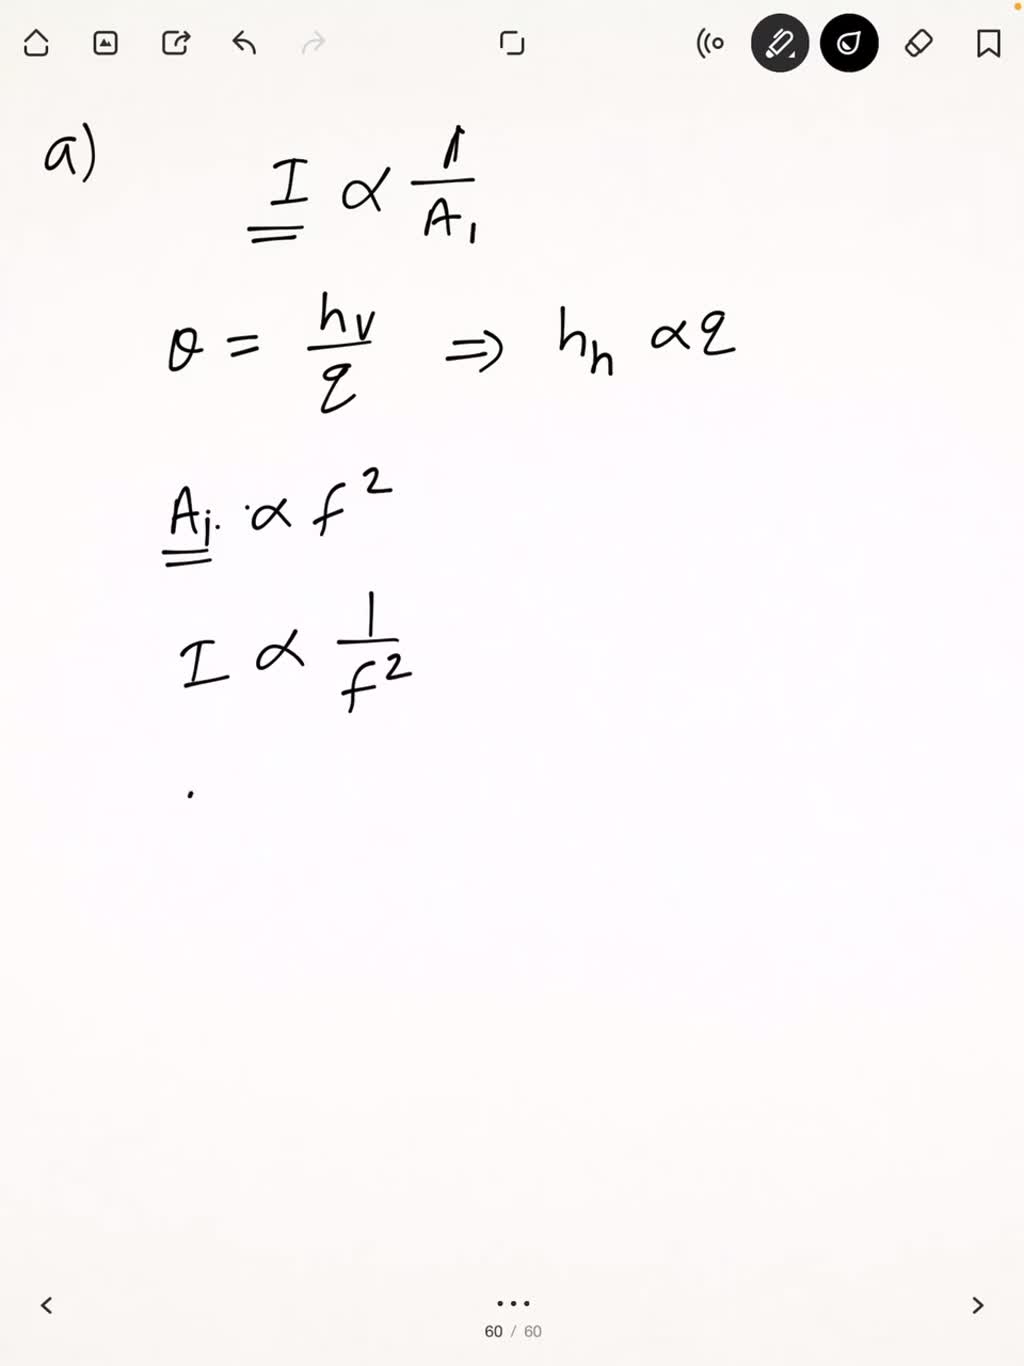 a)
I ∝ 1/A₁
θ = hv/q ⇒ hₕ ∝ q
Aⱼ. ∝ f²
I ∝ 1/f²
60 / 60